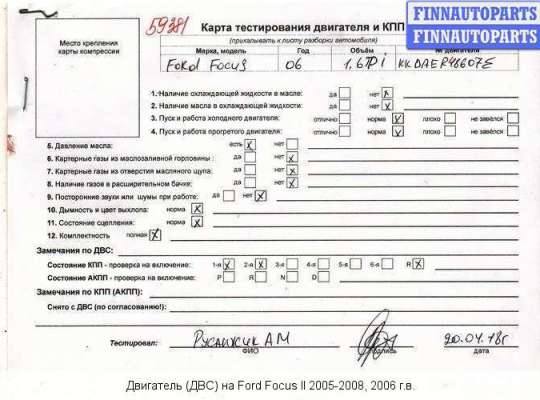 59381
Карта тестирования двигателя и КПП
(прикалывать к листу разборки автомобиля)
FINNAUTOPARTS
FINNAUTOPARTS
Место крепления
карты компрессии
Марка, модель Год Объём № двигателя
Ford Focus 06 1,6TDI
1. Наличие охлаждающей жидкости в масле: да нет X
2. Наличие масла в охлаждающей жидкости: да нет X
3. Пуск и работа холодного двигателя: отлично норма X плохо не завёлся
4. Пуск и работа прогретого двигателя: отлично норма X плохо не завёлся
5. Давление масла: есть X нет
6. Картерные газы из маслозаливной горловины: да нет X
7. Картерные газы из отверстия масляного щупа: да нет X
8. Наличие газов в расширительном бачке: да нет X
9. Посторонние звуки или шумы при работе: да нет X
10. Дымность и цвет выхлопа: норма X
11. Состояние сцепления: норма X
12. Комплектность полная X
Замечания по ДВС:
Состояние КПП - проверка на включение: 1-я X 2-я X 3-я 4-я 5-я 6-я R X
Состояние АКПП - проверка на включение: P R N D
Замечания по КПП (АКПП):
Снято с ДВС (по согласованию!):
Тестировал: Русанжик АМ 20.04.18г
ФИО подпись дата
Двигатель (ДВС) на Ford Focus II 2005-2008, 2006 г.в.